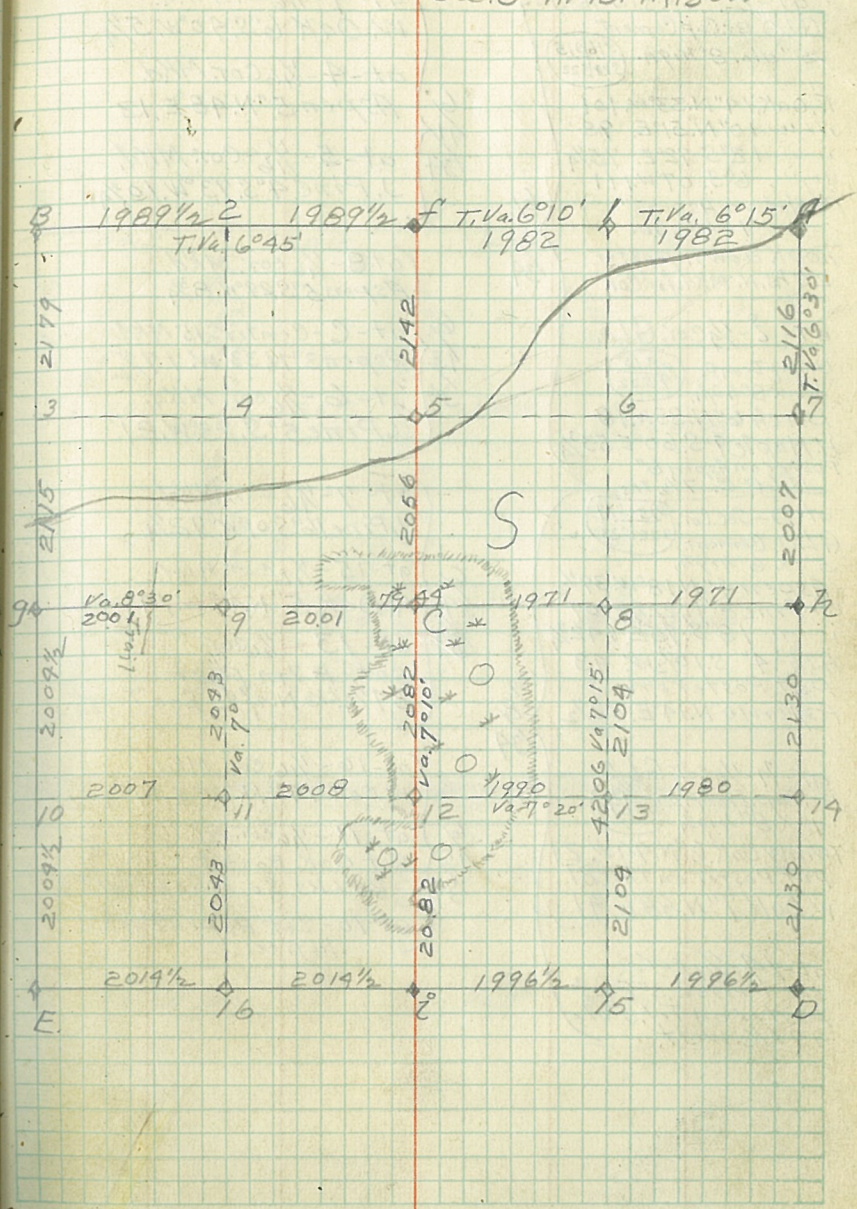 B 1989½ 2 1989½ f T.Va.6°10' 1 T.Va. 6°15' A
T.Va. 6°45' 1982 1982
2179 2142 2116 T.Va 6°30'
3 4 5 6 7
2115 2056 S 2007
g Va. 8°30' 9 2001 7944 C 1971 8 1971 h
2001 Trail
2009½ 2093 Va. 7° 2082 Va. 7°10' 4206 Va 7°15' 2104 2130
2007 2008 1990 1980
10 11 12 Va 7°20' 13 14
2009½ 2043 20.82 2104 2130
2014½ 2014½ 1996½ 1996½
E. 16 i 15 D